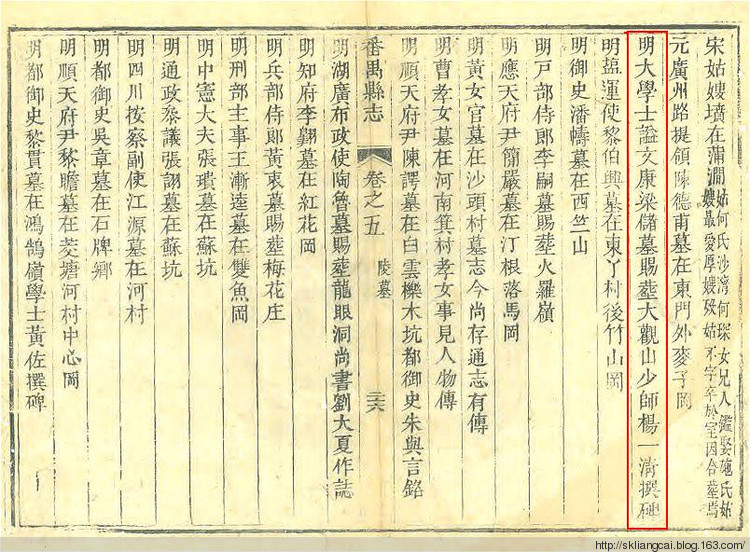 宋姑嫂墳在蒲澗姑何氏沙灣何琛女兄人鑑娶葴氏姑
嫂最愛厚嫂歿姑不字卒於室因合塟焉
元廣州路提領陳德甫墓在東門外麥子岡
明大學士謚文康梁儲墓賜塟大觀山少師楊一淸撰碑
明鹽運使黎伯興墓在東丫村後竹山岡
明御史潘幬墓在西竺山
明戸部侍郎李嗣墓賜塟火羅嶺
明應天府尹簡嚴墓在汀根落馬岡
明黃女官墓在沙頭村墓志今尚存通志有傳
明曹孝女墓在河南箕村孝女事見人物傳
明順天府尹陳諤墓在白雲櫟木坑都御史朱與言銘
番禺縣志 卷之五 陵墓 三六
明湖廣布政使陶魯墓賜塟龍眼洞尚書劉大夏作誌
明知府李翺墓在紅花岡
明兵部侍郎黃衷墓賜塟梅花庄
明刑部主事王漸逵墓在雙魚岡
明中憲大夫張璝墓在蘇坑
明通政叅議張詡墓在蘇坑
明四川按察副使江源墓在河村
明都御史吳章墓在石牌鄉
明順天府尹黎瞻墓在菱塘河村中心岡
明都御史黎貫墓在鴻鵠嶺學士黃佐撰碑
http://skliangcai.blog.163.com/